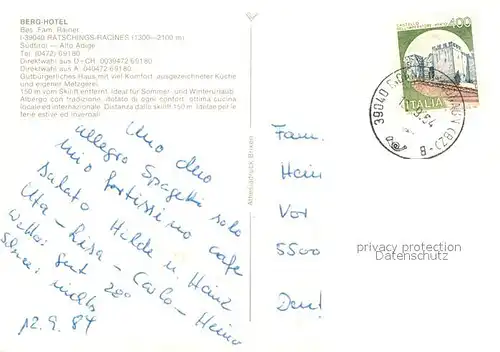 BERG-HOTEL
Bes. Fam. Rainer
I-39040 RATSCHINGS-RACINES (1300—2100 m)
Südtirol — Alto Adige
Tel. (0472) 69180
Direktwahl aus D - CH 0039472 69180
Direktwahl aus A 040472 69180
Gutbürgerliches Haus mit viel Komfort, ausgezeichneter Küche
und eigener Metzgerei.
150 m vom Skilift entfernt. Ideal für Sommer- und Winterurlaub.
Albergo con tradizione, dotato di ogni confort, ottima cucina
locale ed internazionale. Distanza dallo skilift 150 m. Ideale per le
ferie estive ed invernali
400
ITALIA
39040
(BZ)
Uno due
allegro Spagetti solo
mio fortissimo cafe
salato Hilde u. Heinz
Uta - Lisa - Carlo - Heino
Wetter: gut 20°
Schnee: nichts
12.9.84
Fam.
Hein
Vor
5500
Den
privacy protection
Datenschutz